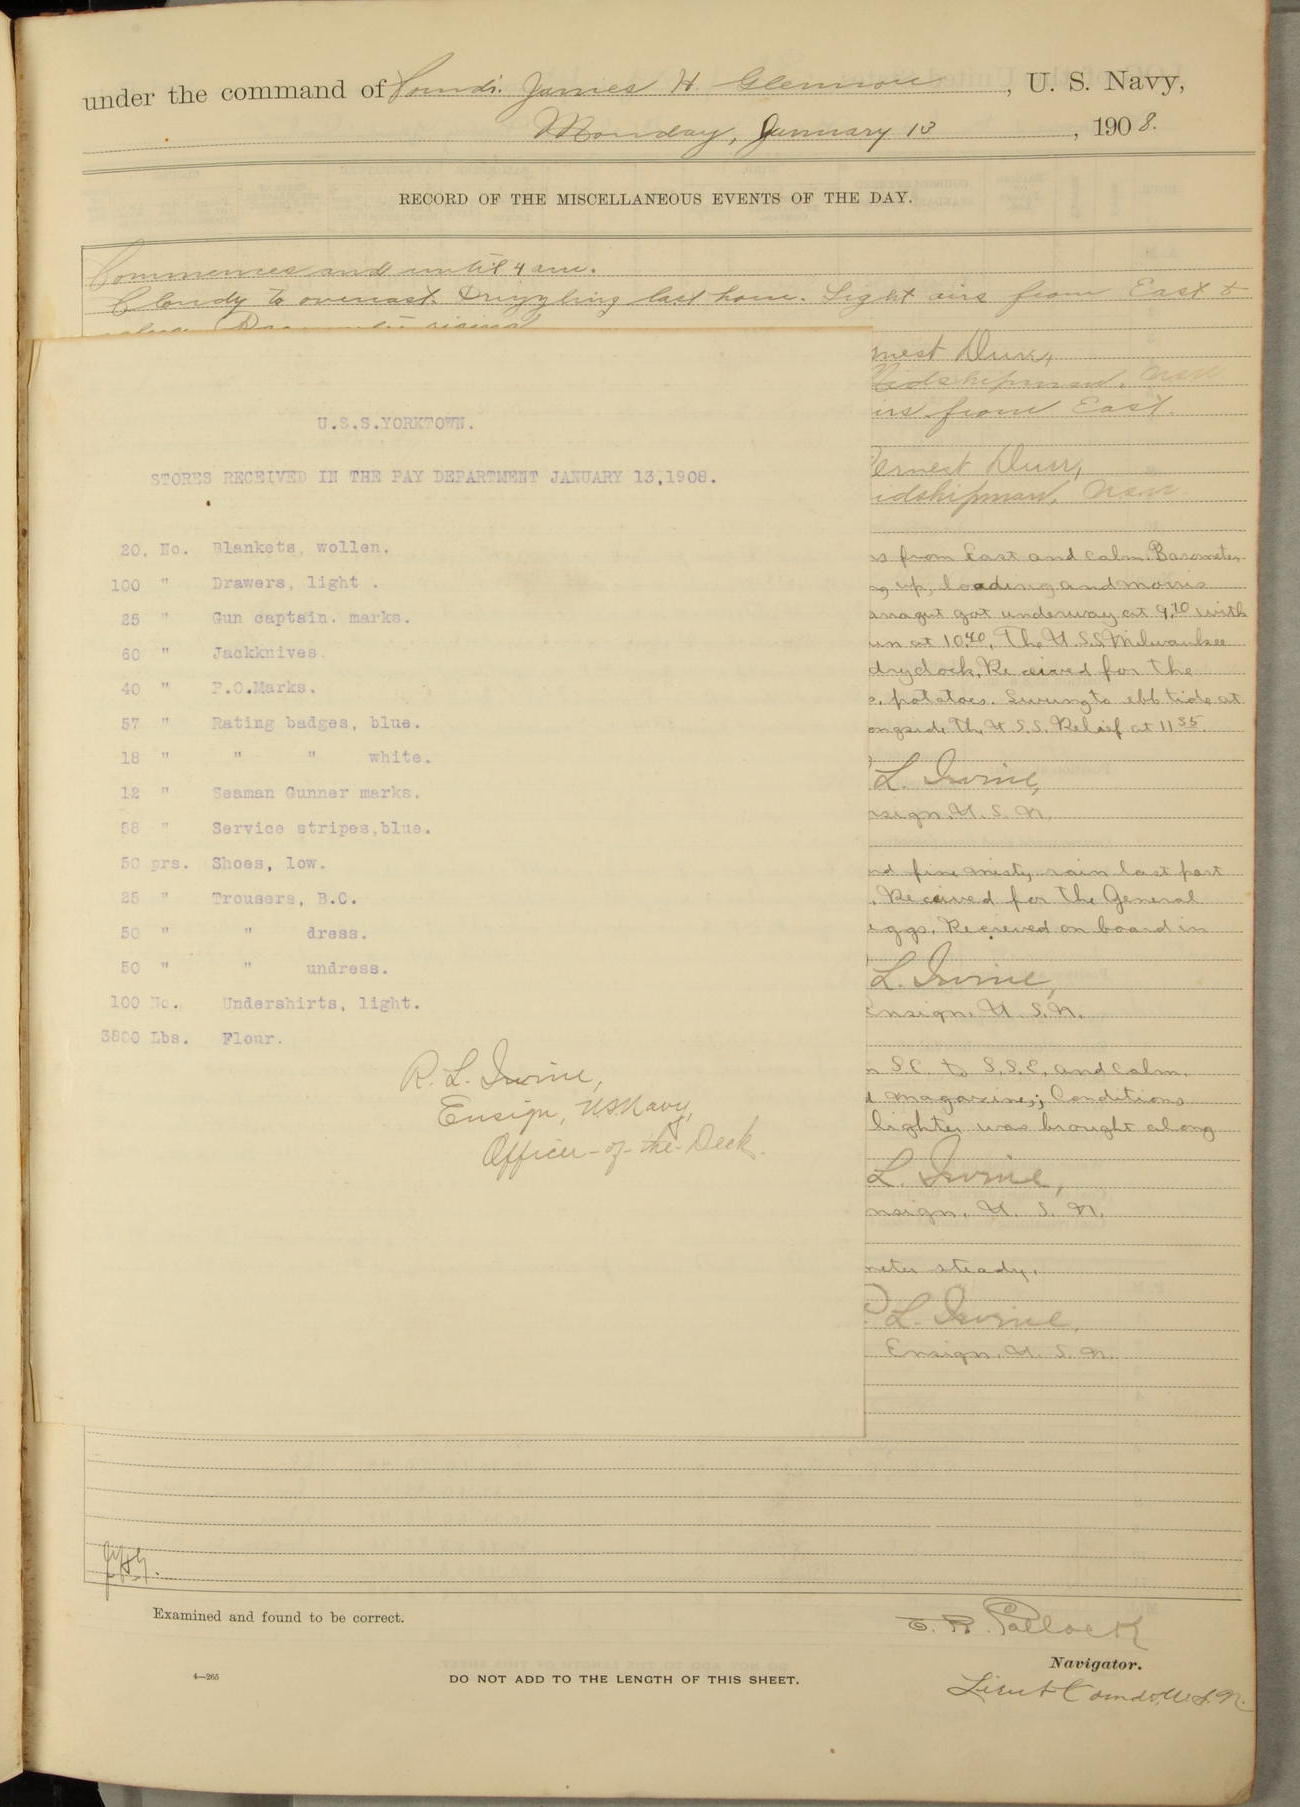 under the command of Comdr. James H. Glennon, U. S. Navy,
Monday, January 13, 1908.
RECORD OF THE MISCELLANEOUS EVENTS OF THE DAY.
Commences and until 4 am.
Cloudy to overcast. Drizzling last hour. Light airs from East &
rising
U.S.S.YORKTOWN.
STORES RECEIVED IN THE PAY DEPARTMENT JANUARY 13,1908.
20, No. Blankets, wollen.
100 " Drawers, light .
25 " Gun captain. marks.
60 " Jackknives.
40 " P.O.Marks.
57 " Rating badges, blue.
18 " " " white.
12 " Seaman Gunner marks.
58 " Service stripes,blue.
50 prs. Shoes, low.
25 " Trousers, B.C.
50 " " dress.
50 " " undress.
100 No. Undershirts, light.
3800 Lbs. Flour.
R. L. Irvine,
Ensign, U.S.Navy,
Officer-of-the-Deck.
nest Durr,
idshipman,
irs from East.
Ernest Durr,
idshipman,
s from East and calm. Barometer
g up, loading and morris
anagut got underway at 9.10 with
un at 10.40. The U.S.S. Milwaukee
drydock. Received for the
s, potatoes. Swung to ebb tide at
ongside the U.S.S. Relief at 11 35.
L. Irvine,
nsign, U. S. N.
nd fine misty rain last part
. Received for the General
eggs. Recieved on board in
L. Irvine,
Ensign, U. S. N.
S.E. to S.S.E. and calm.
d magazines; Conditions
lighter was brought along
L. Irvine,
nsign, U. S. N.
meter steady.
L. Irvine,
Ensign, U. S. N.
Examined and found to be correct.
E. R. Pollock
Navigator.
4—265
DO NOT ADD TO THE LENGTH OF THIS SHEET.
Lieut Comdr, U.S.N.